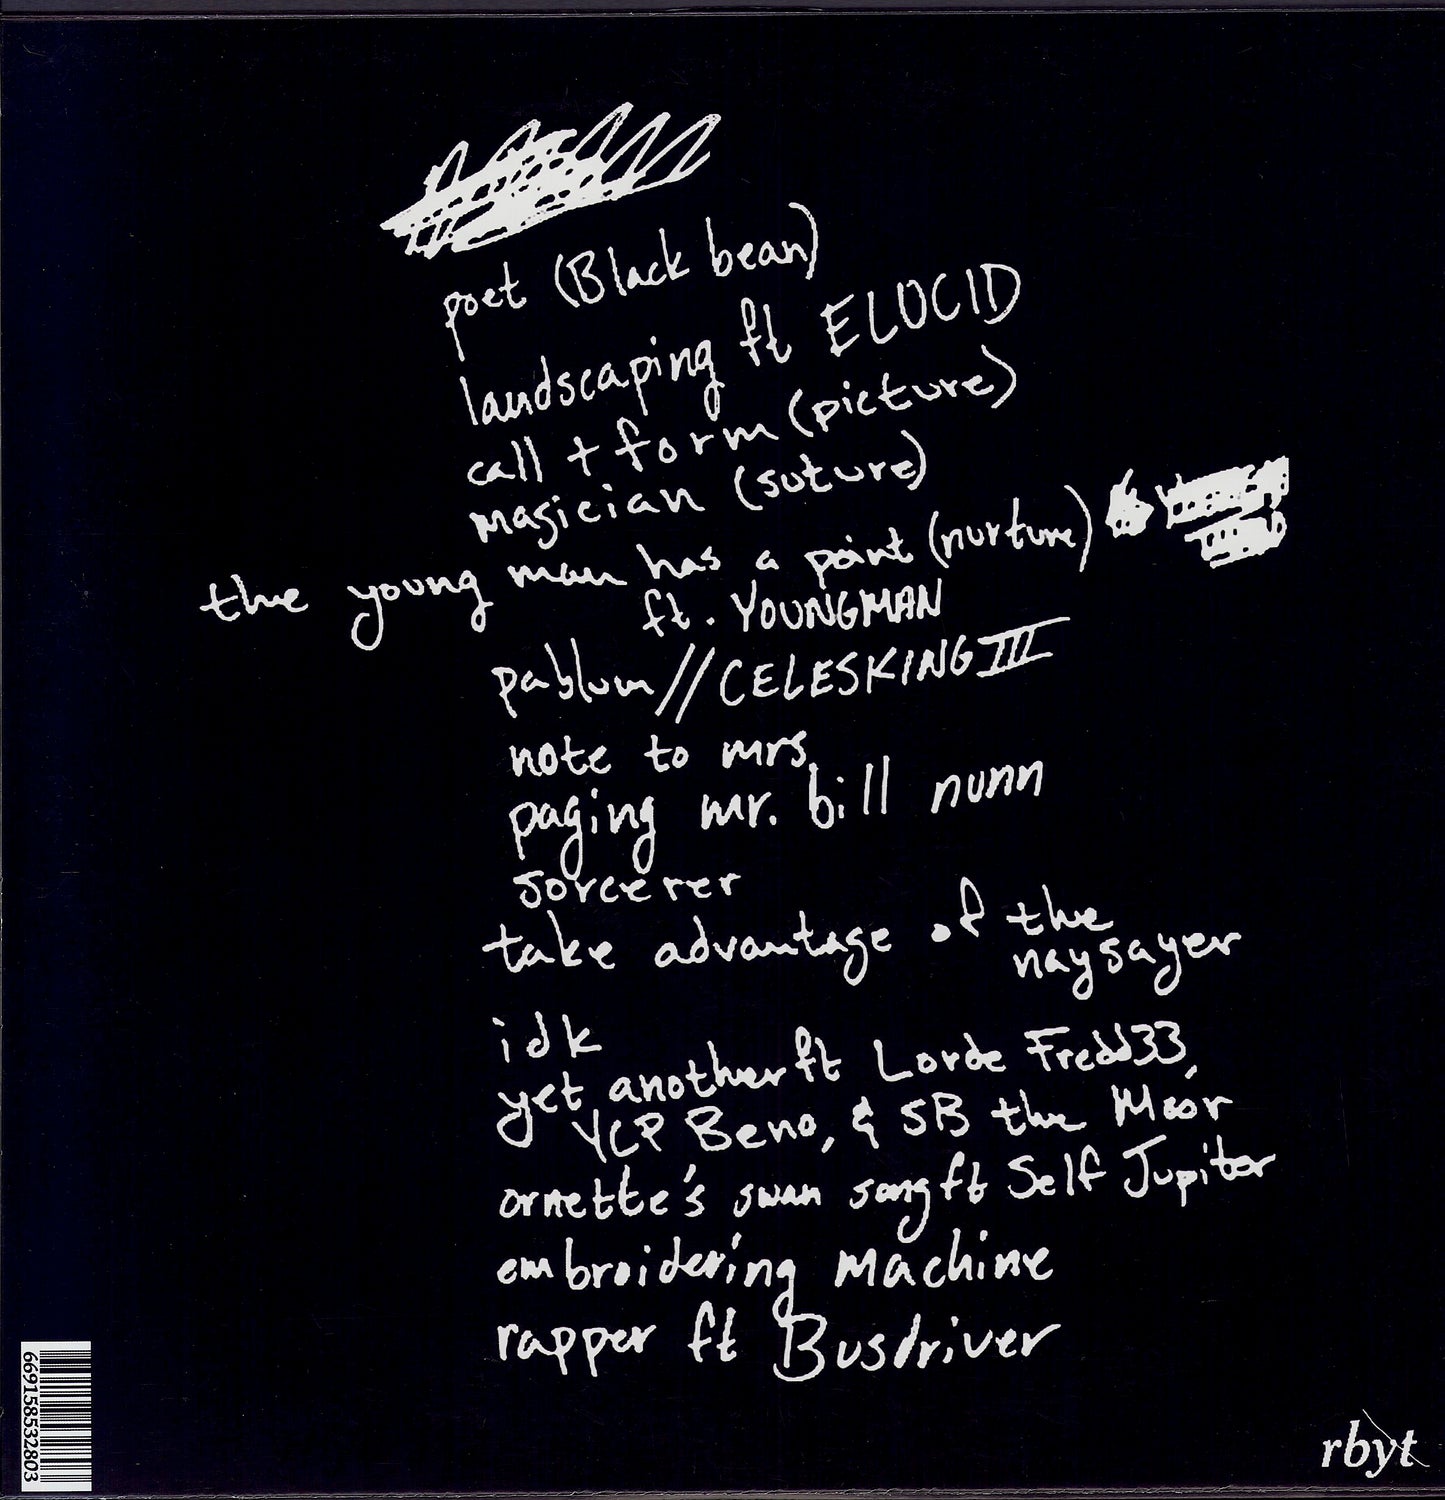 poet (Black bean)
landscaping ft ELUCID
call + form (picture)
magician (suture)
the young man has a point (nurture)
ft. YOUNGMAN
pablum // CELESKINGIII
note to mrs
paging mr. bill nunn
sorcerer
take advantage of the
naysayer
idk
yet another ft Lorde Fredd33,
YCP Beno, & SB the Moor
ornette's swan song ft Self Jupitor
embroidering machine
rapper ft Busdriver
669158532803
rbyt